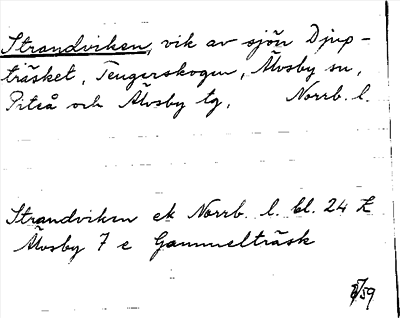 Strandviken, vik av sjön Djup-
träsket, Teugerskogen, Älvsby sn,
Piteå och Älvsby tg, Norrb. l.
Strandviken ek Norrb. l. bl. 24 Z
Älvsby 7 e Gammelträsk